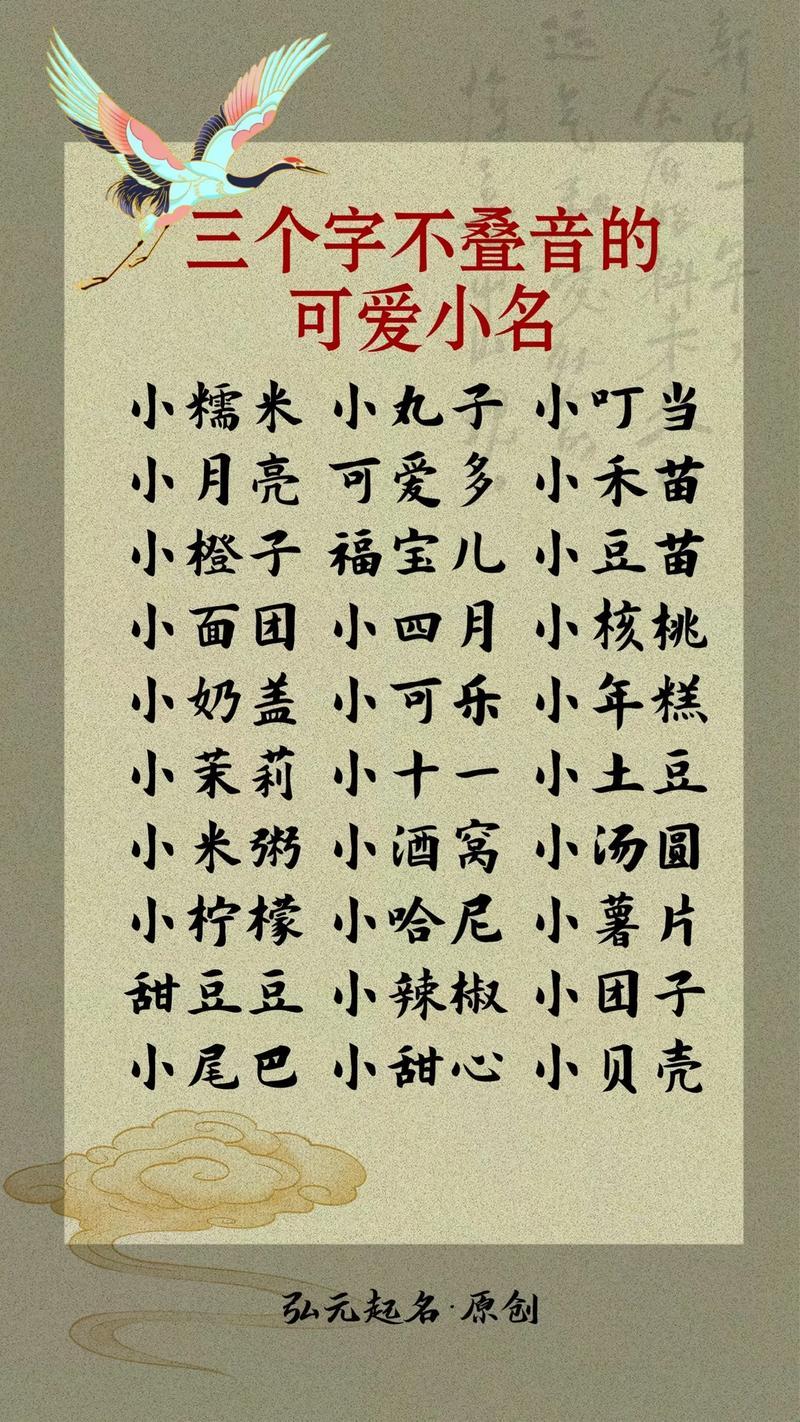 三个字不叠音的
可爱小名
小糯米 小丸子 小叮当
小月亮 可爱多 小禾苗
小橙子 福宝儿 小豆苗
小面团 小四月 小核桃
小奶盖 小可乐 小年糕
小茉莉 小十一 小土豆
小米粥 小酒窝 小汤圆
小柠檬 小哈尼 小薯片
甜豆豆 小辣椒 小团子
小尾巴 小甜心 小贝壳
弘元起名·原创